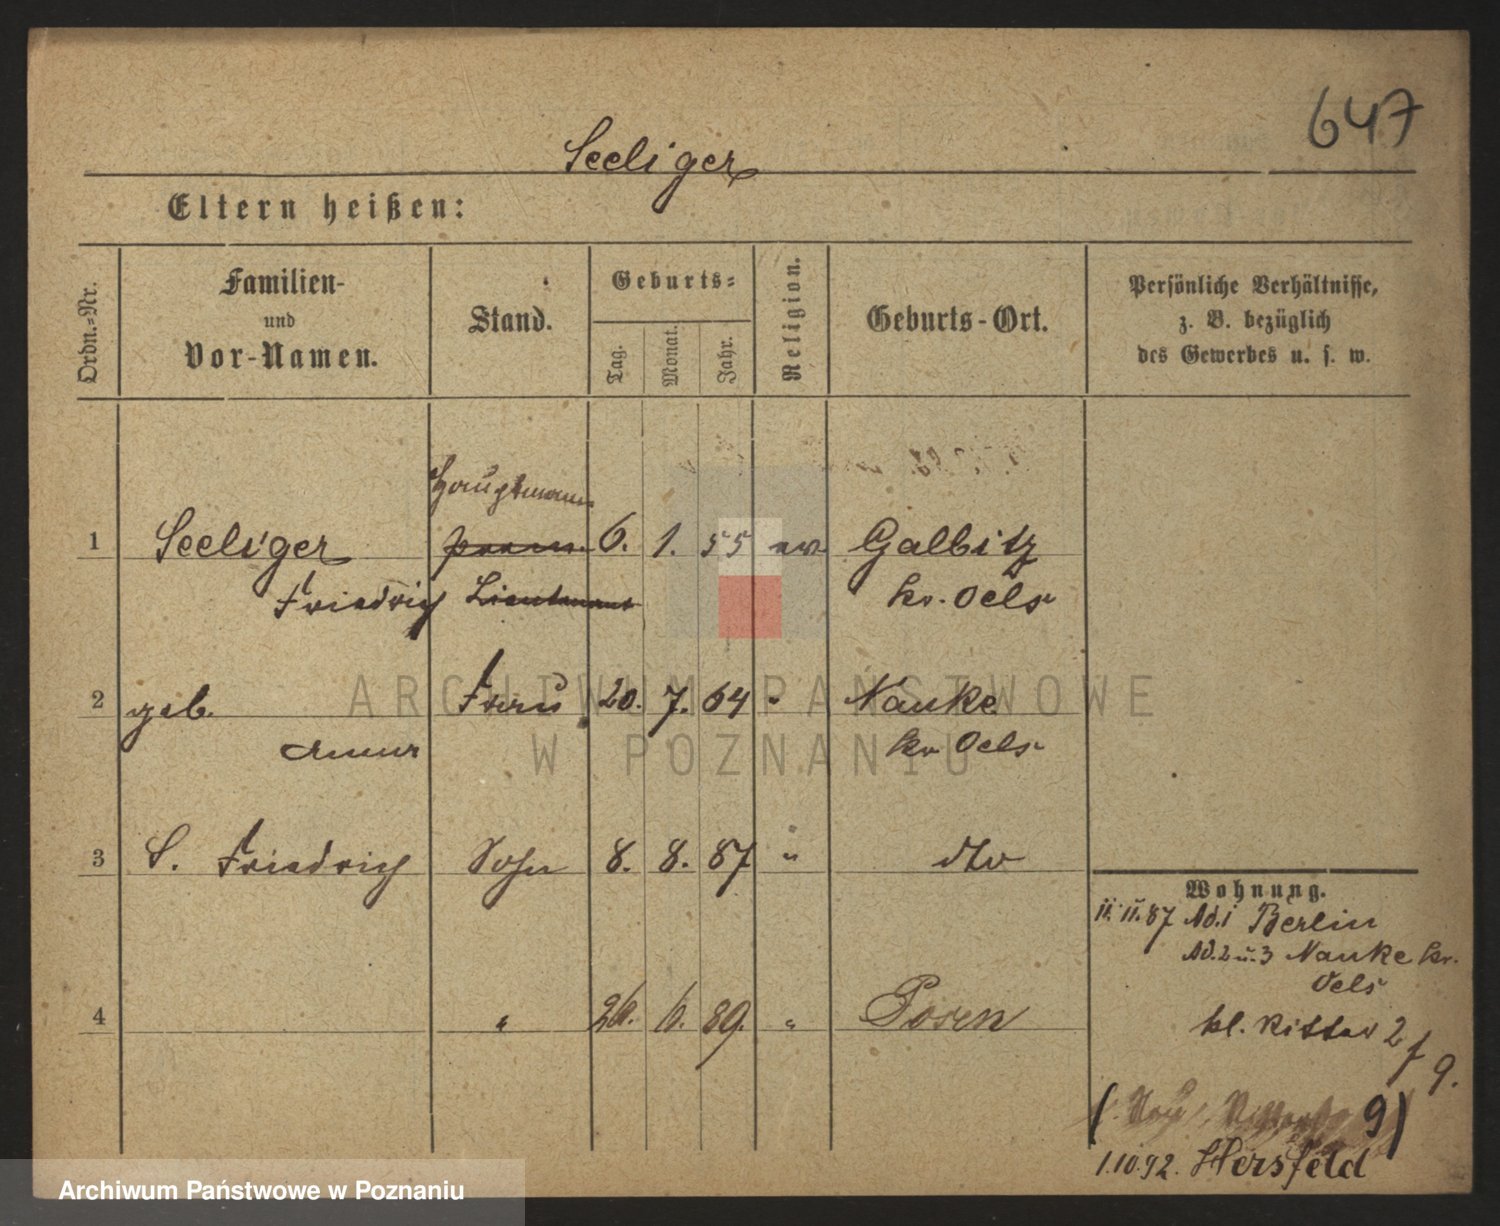 647
Seeliger
Eltern heißen:
Ordn.-Nr.
Familien-
und
Vor-Namen.
Stand.
Geburts-
Tag.
Monat.
Jahr.
Religion.
Geburts-Ort.
Persönliche Verhältnisse,
z. B. bezüglich
des Gewerbes u. s. w.
Hauptmann
1 Seeliger prem. 6. 1. 55 ev Galbitz
Friedrich Lieutenant Kr. Oels
2 geb. Frau 20. 7. 64 " Nauke
Kr Oels
3 S. Friedrich Sohn 8. 8. 87 " dto
Wohnung.
11.11.87 Ad.1 Berlin
Ad. 2 u. 3 Nauke Kr.
Oels
4 " 26. 6. 89. " Posen
kl. Ritter 2
9.
( 9)
1.10.92. Hersfeld
ARCHIWUM PAŃSTWOWE
W POZNANIU
Archiwum Państwowe w Poznaniu